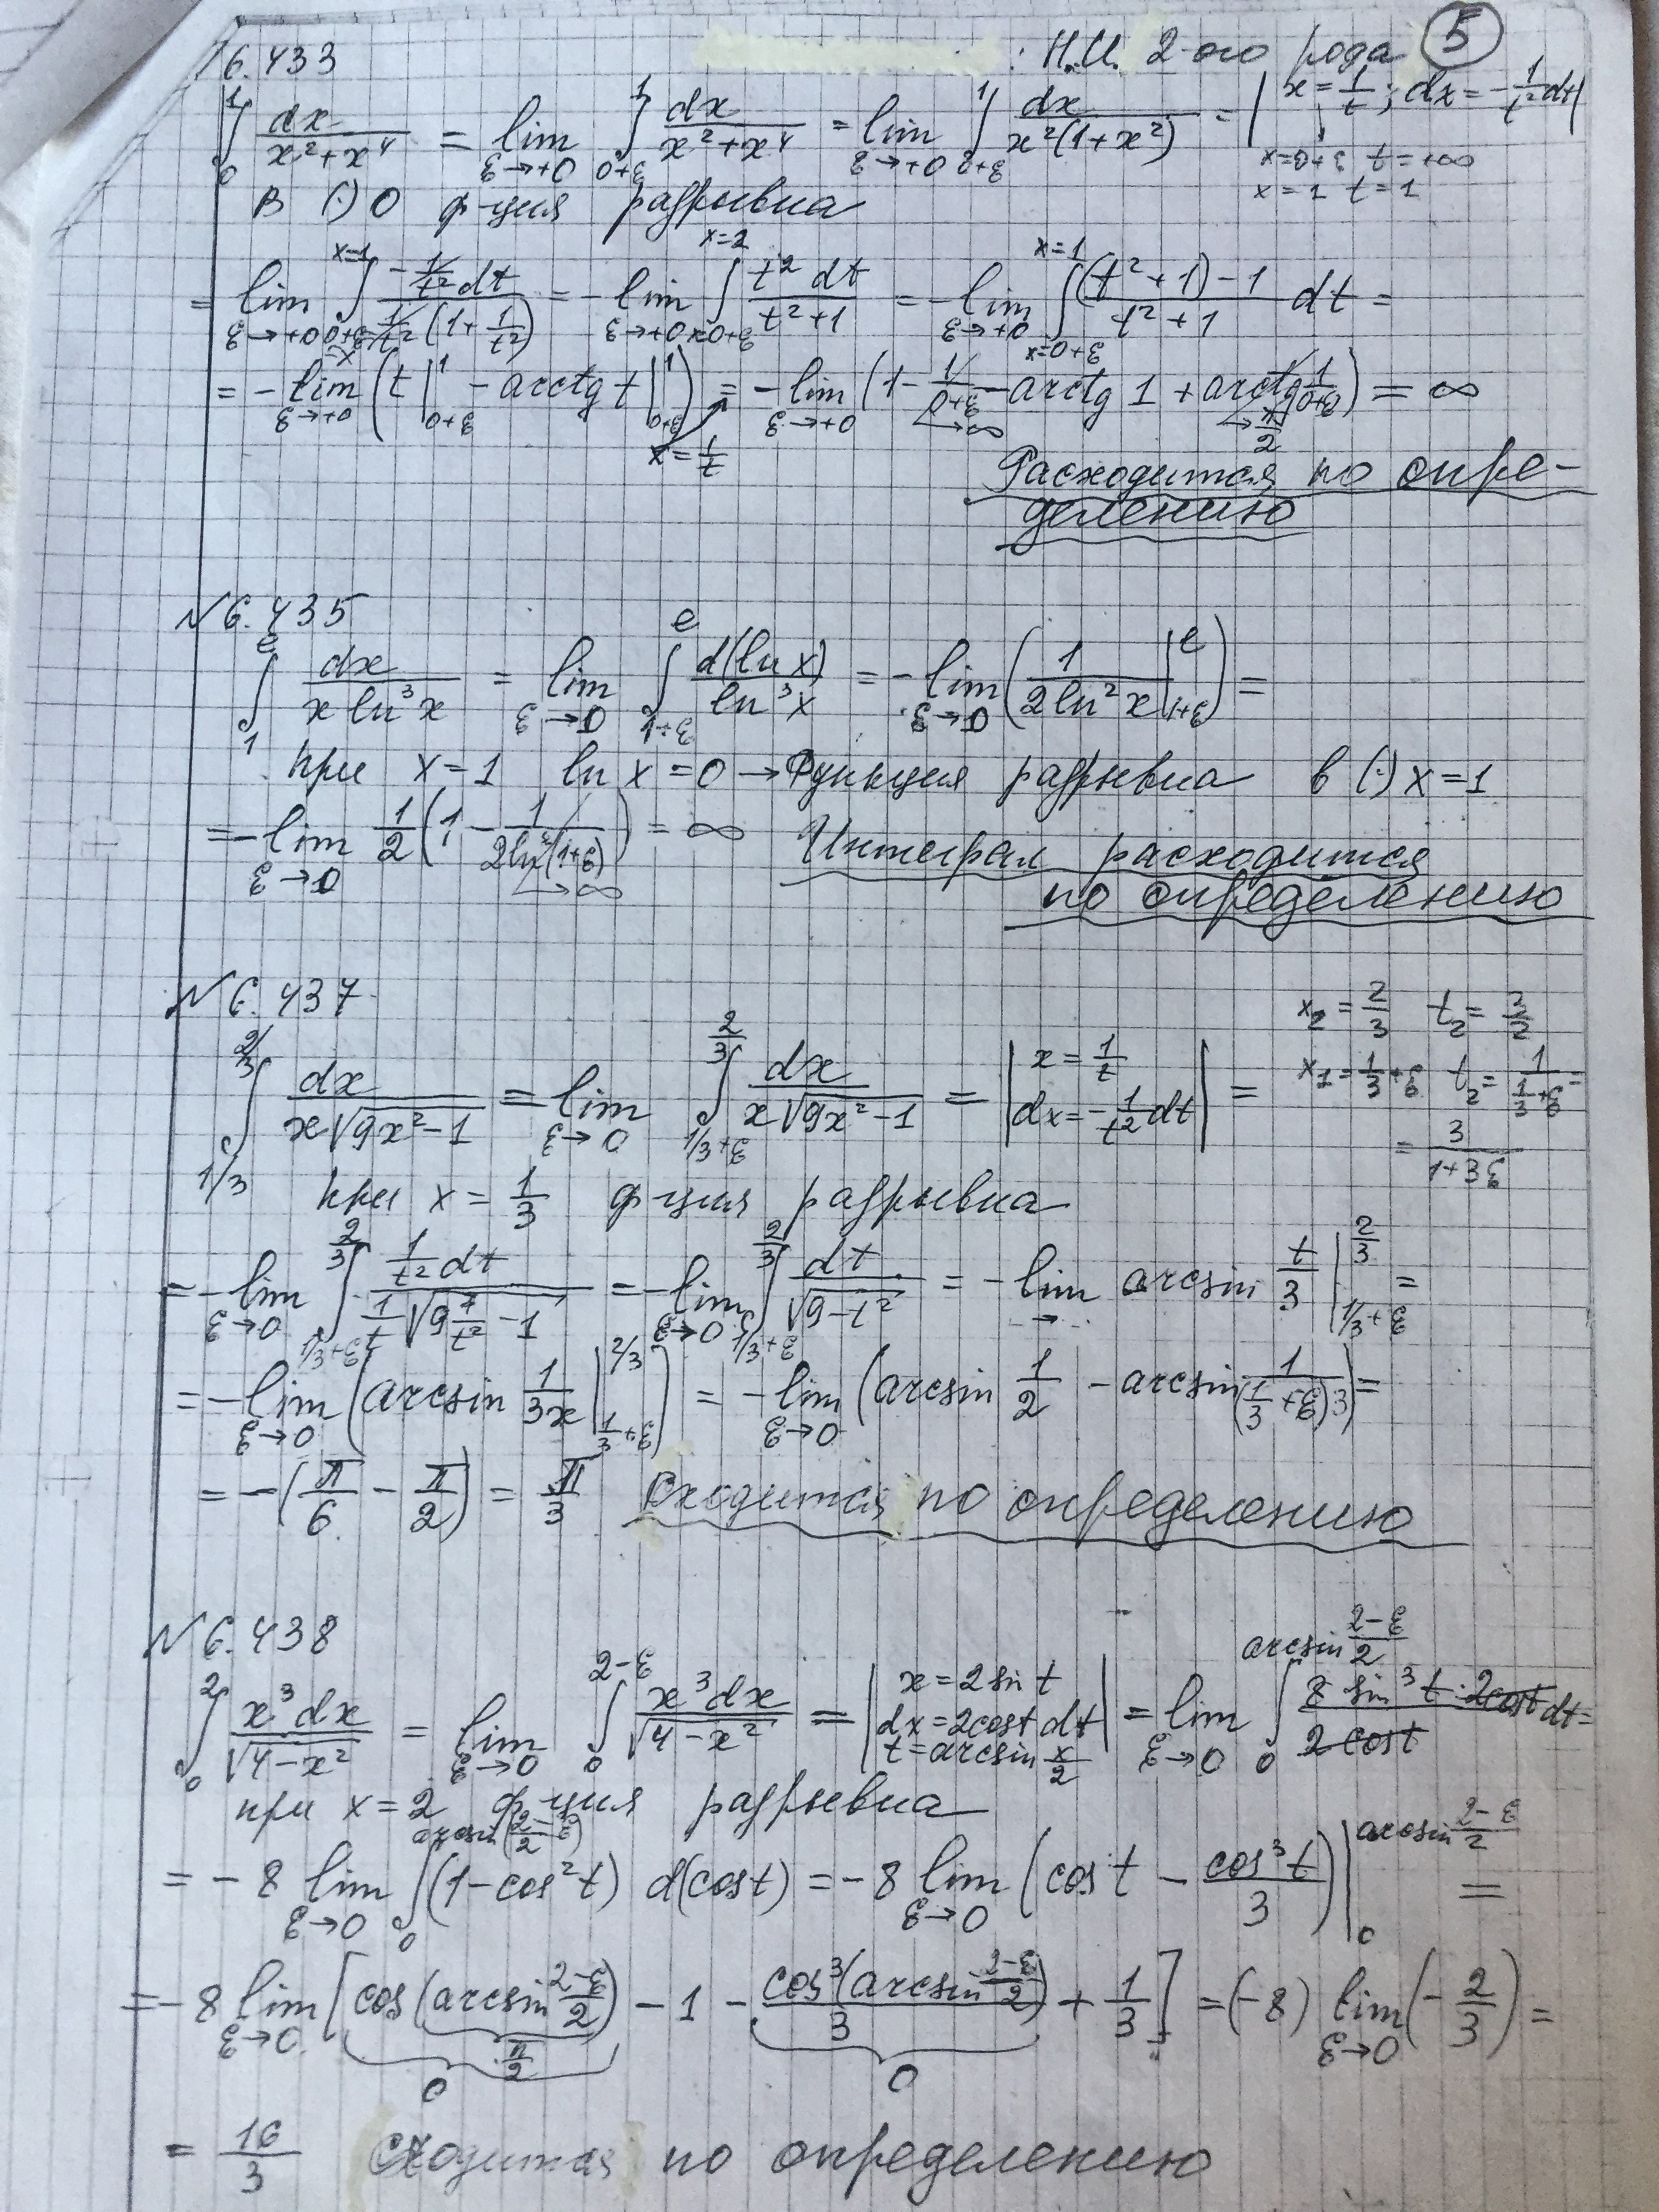 6.433 : Н.И. 2-ого рода 5
∫₀¹ dx/(x²+x⁴) = lim_{ε→+0} ∫_{0+ε}^{1} dx/(x²+x⁴) = lim_{ε→+0} ∫_{0+ε}^{1} dx/(x²(1+x²)) = | x = 1/t ; dx = -1/t² dt |
x=0+ε t=+∞
x=1 t=1
В (·) 0 ф-ция разрывна
= lim_{ε→+0} ∫_{x=0+ε}^{x=1} (-1/t² dt)/(1/t² (1+1/t²)) = -lim_{ε→+0} ∫_{x=0+ε}^{x=2} t² dt/(t²+1) = -lim_{ε→+0} ∫_{x=0+ε}^{x=1} ((t²+1)-1)/(t²+1) dt =
= -lim_{ε→+0} (t|_{0+ε}^{1} - arctg t|_{0+ε}^{1}) = -lim_{ε→+0} (1 - 1/(0+ε) - arctg 1 + arctg 1/(0+ε)) = ∞
x = 1/t → ∞ → π/2
Расходится по опре-
делению
N 6.435
∫₁ᵉ dx/(x ln³x) = lim_{ε→0} ∫_{1+ε}^{e} d(ln x)/ln³x = -lim_{ε→0} (1/(2ln²x)|_{1+ε}^{e}) =
при x=1 ln x = 0 → Функция разрывна в (·) x=1
= -lim_{ε→0} 1/2 (1 - 1/(2ln²(1+ε))) = ∞ Интеграл расходится
→ ∞ по определению
N 6.437
x₂ = 2/3 t₂ = 3/2
∫_{1/3}^{2/3} dx/(x√(9x²-1)) = lim_{ε→0} ∫_{1/3+ε}^{2/3} dx/(x√(9x²-1)) = | x = 1/t dx = -1/t² dt | =
x₁ = 1/3+ε t₂ = 1/(1/3+ε) =
= 3/(1+3ε)
при x = 1/3 ф-ция разрывна
= -lim_{ε→0} ∫_{1/3+ε}^{2/3} (1/t² dt)/(1/t √(9 1/t² - 1)) = -lim_{ε→0} ∫_{1/3+ε}^{2/3} dt/√(9-t²) = -lim_{→} arcsin t/3 |_{1/3+ε}^{2/3} =
= -lim_{ε→0} (arcsin 1/(3x) |_{1/3+ε}^{2/3}) = -lim_{ε→0} (arcsin 1/2 - arcsin 1/((1/3+ε)3)) =
= -(π/6 - π/2) = π/3 Сходится по определению
N 6.438
∫₀² x³dx/√(4-x²) = lim_{ε→0} ∫₀^{2-ε} x³dx/√(4-x²) = | x = 2 sin t dx = 2cost dt t = arcsin x/2 | = lim_{ε→0} ∫₀^{arcsin (2-ε)/2} (8 sin³t · 2cost)/(2 cost) dt =
при x=2 ф-ция разрывна
= -8 lim_{ε→0} ∫₀^{arcsin((2-ε)/2)} (1-cos²t) d(cost) = -8 lim_{ε→0} (cos t - cos³t/3) |₀^{arcsin (2-ε)/2} =
= -8 lim_{ε→0} [cos(arcsin (2-ε)/2) - 1 - cos³(arcsin (2-ε)/2)/3 + 1/3] = (-8) lim_{ε→0} (-2/3) =
π/2
0 0
= 16/3 Сходится по определению